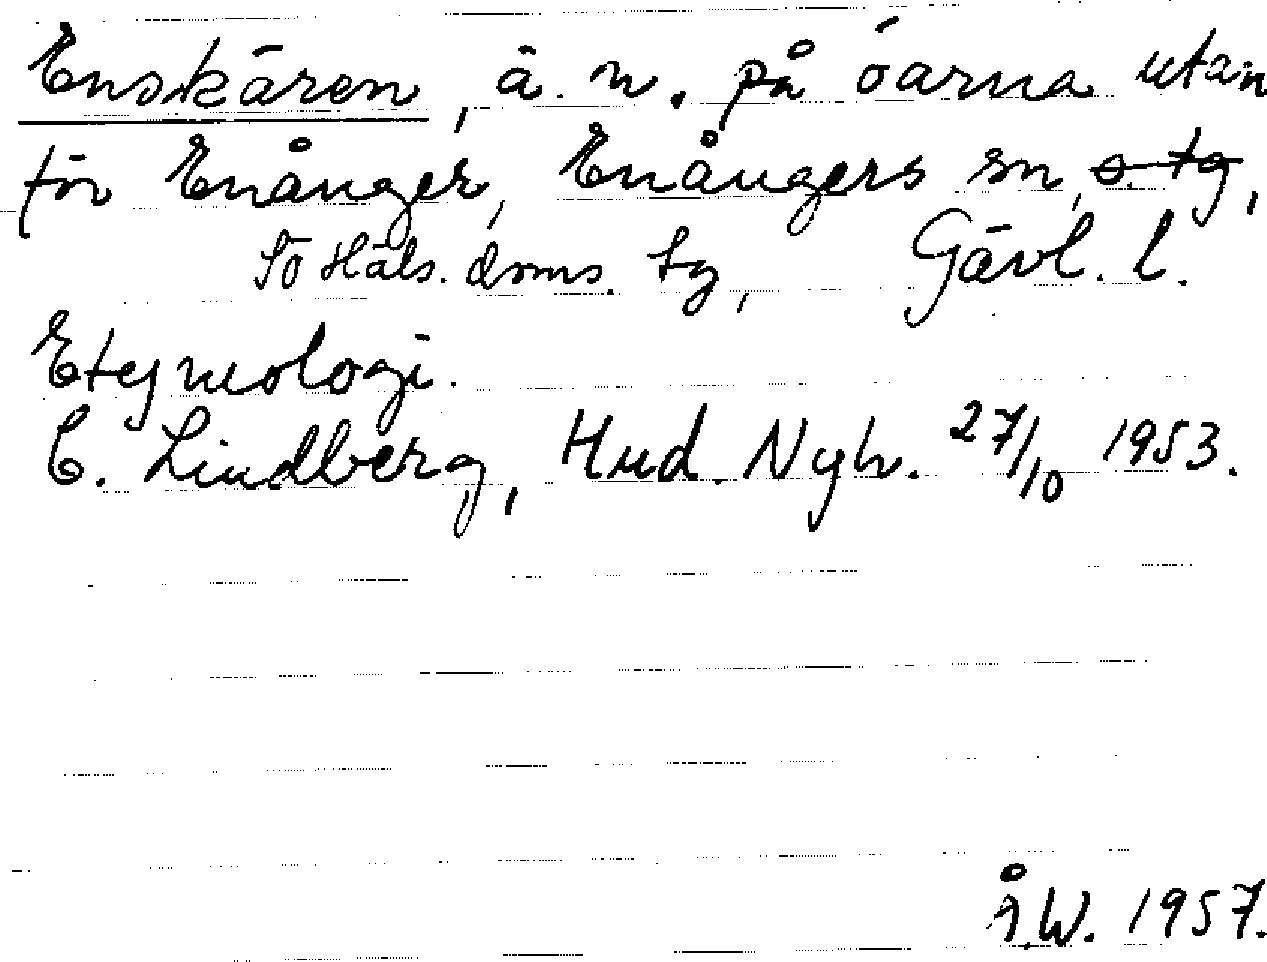 Enskären, ä. n. på öarna utan
för Enånger, Enångers sn, s. tg,
Sö Häls. doms. tg, Gävl. l.
Etymologi.
C. Lindberg, Hud. Nyh. 27/10 1953.
Å.W. 1957.